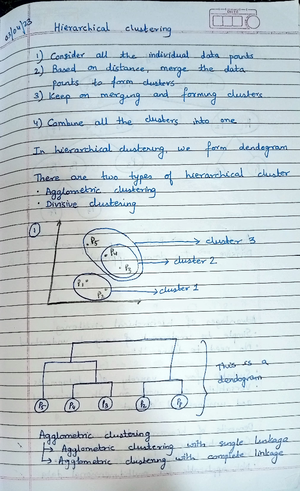 01/04/23
Hierarchical clustering
1) Consider all the individual data points
2) Based on distance, merge the data
points to form clusters
3) Keep on merging and forming clusters
4) Combine all the clusters into one
In hierarchical clustering, we form dendogram
There are two types of hierarchical cluster
• Agglometric clustering
• Divisive clustering
①
P5 → cluster 3
P4
→ cluster 2
P3
P1
→ cluster 1
P2
This is a
dendogram
P5 P4 P3 P2 P1
Agglometric clustering
↳ Agglometric clustering with single leakage
↳ Agglometric clustering with complete linkage